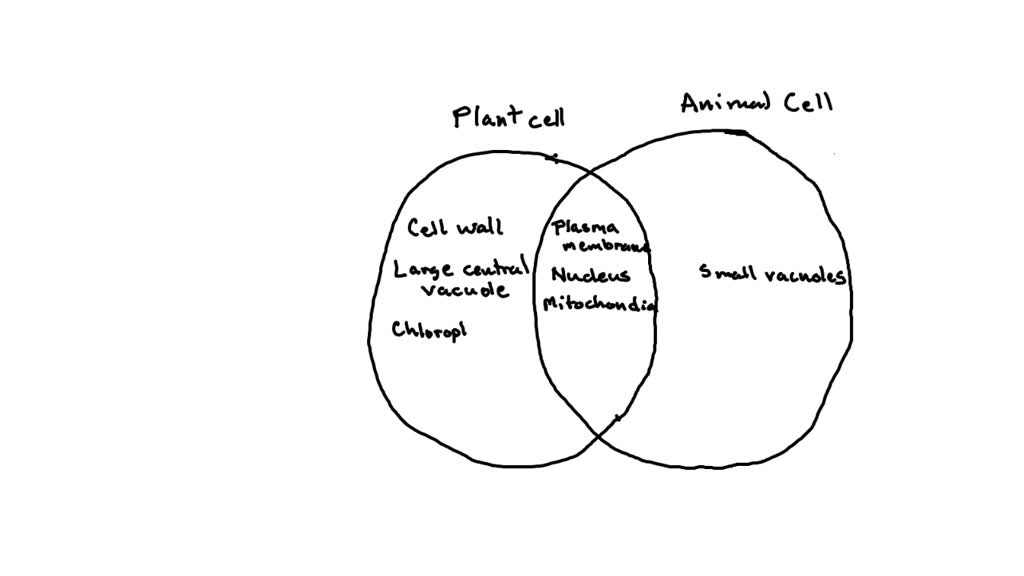 Plant cell
Animal Cell
Cell wall
Large central
vacuole
Chloropl
Plasma
membrane
Nucleus
Mitochondia
Small vacuoles